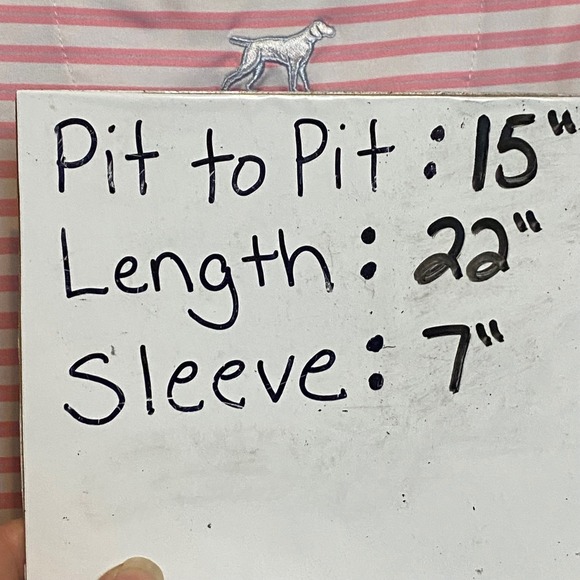 Pit to Pit : 15"
Length : 22"
Sleeve : 7"